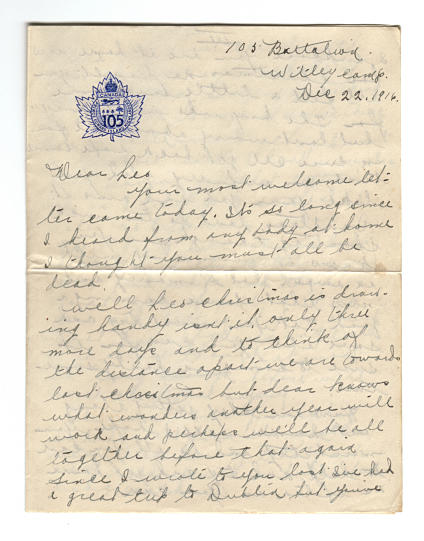 105 Battalion.
Witley camp.
Dec 22. 1916.
CANADA
105
Dear Leo
Your most welcome let-
ter came today. It's so long since
I heard from any body at home
I thought you must all be
dead.
Well Leo christmas is draw-
ing handy isn't it only three
more days and to think of
the distance apart we are towards
last christmas but dear knows
what wonders another year will
work and perhaps we'll be all
together before that again
Since I wrote to you last I've had
a great trip to Dublin but you've